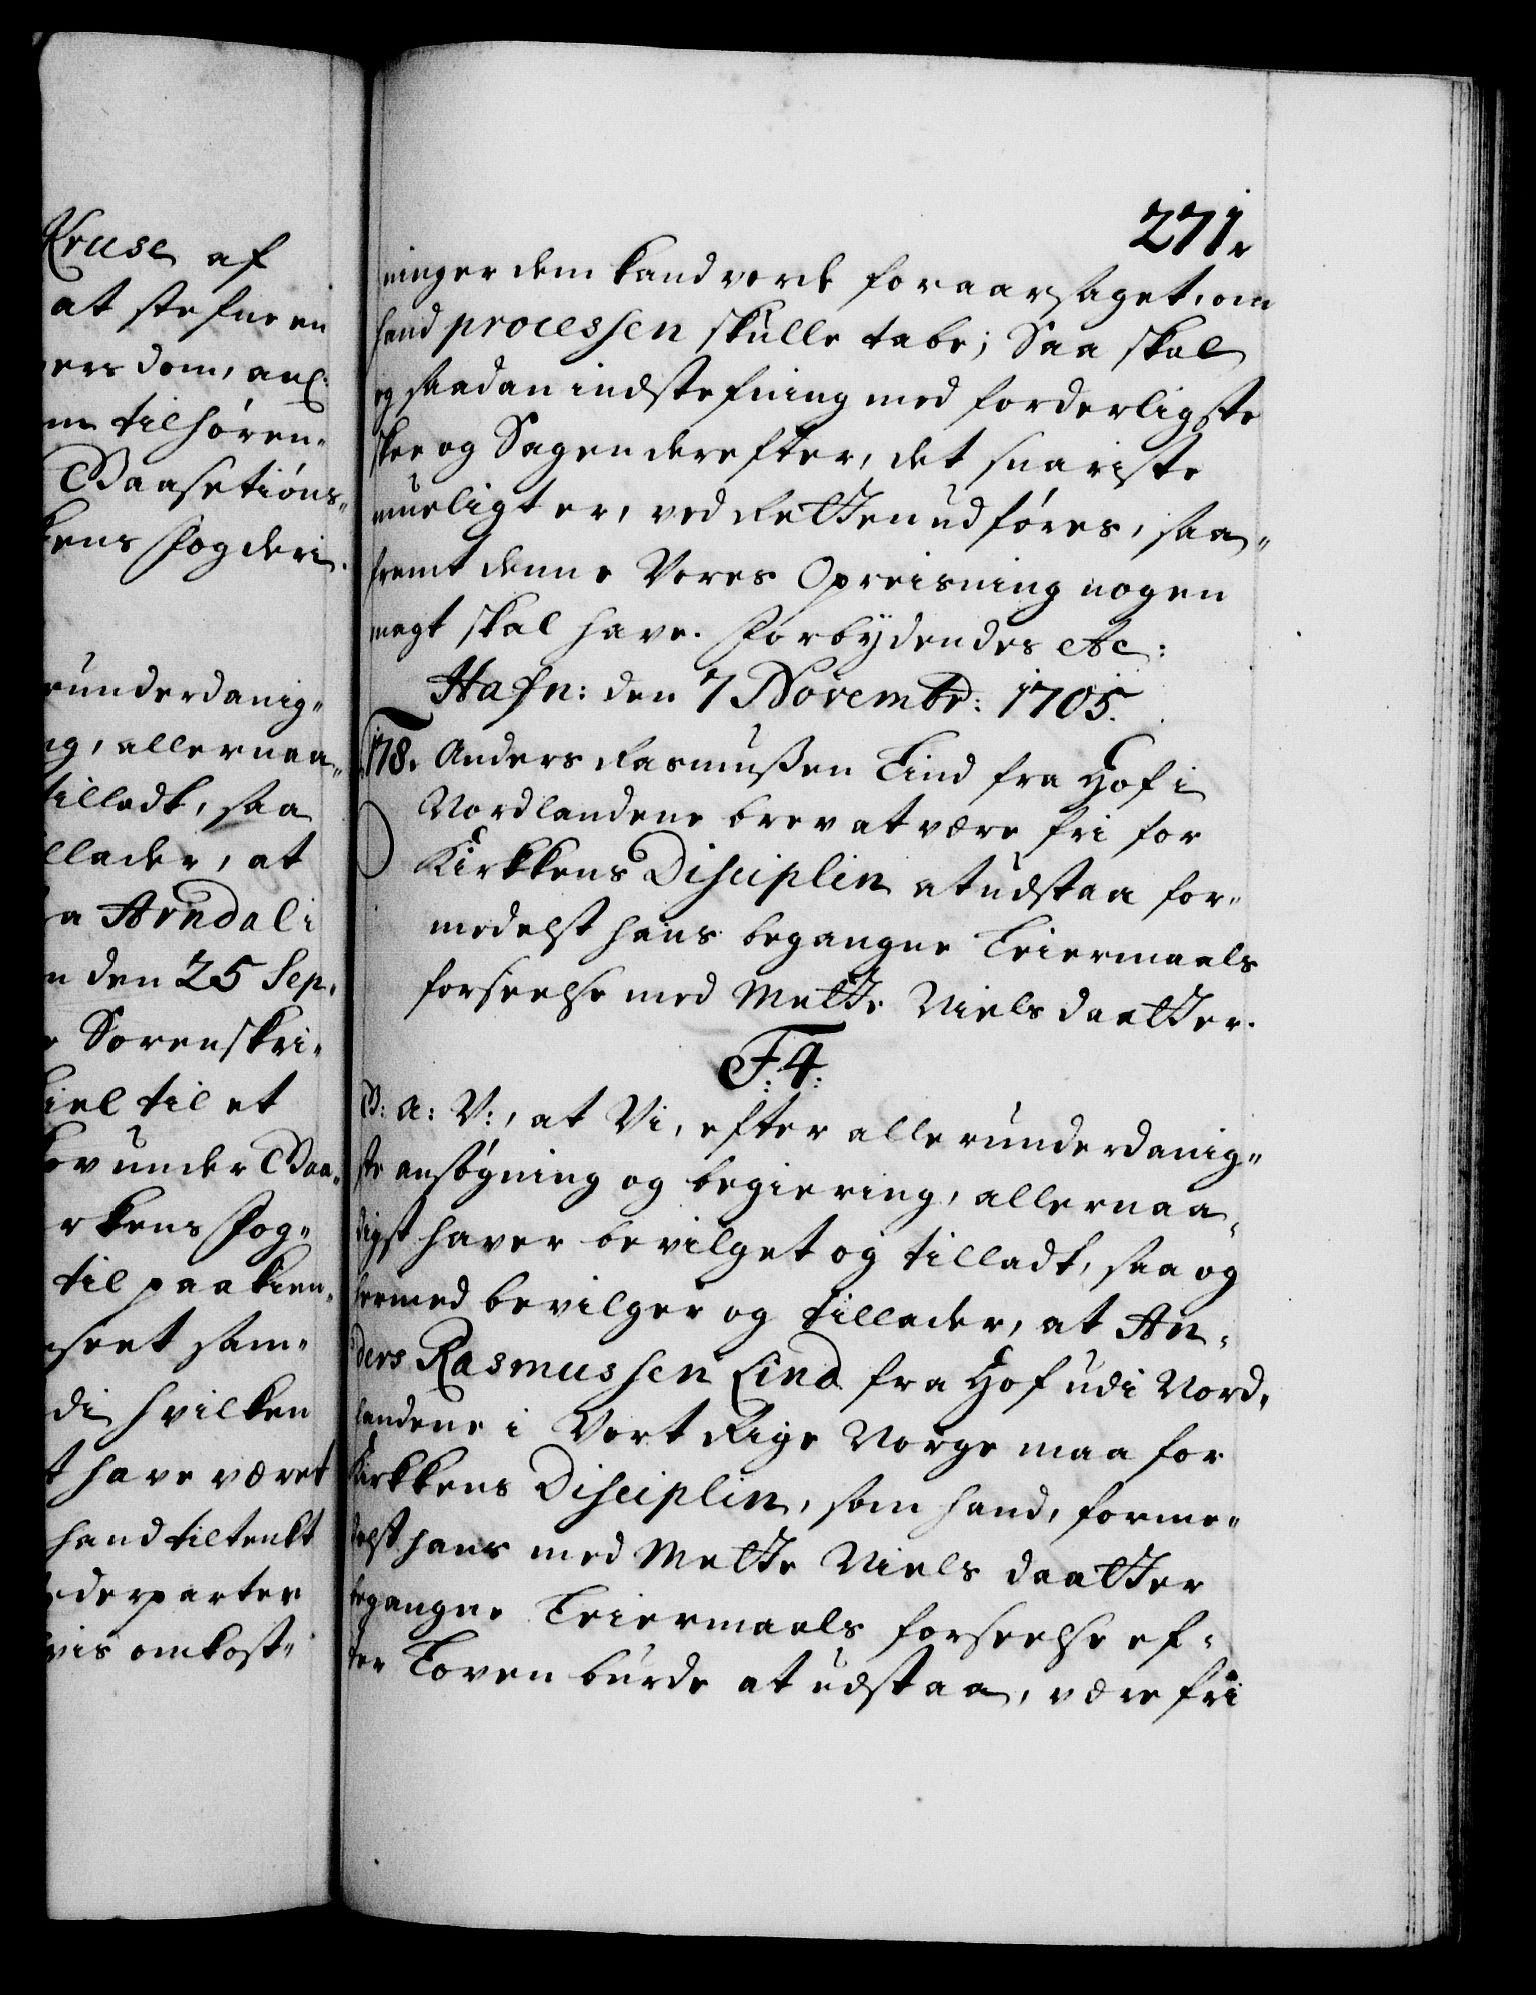 Kruse af
at stefne en
ers dom, anl:
m tilhören-
Baasetiøns-
kens Fogderi.
runderdanig-
ng, allernaa-
tilladt, saa
llader, at
a Arndal i
n den 25 Sep.
r Sorenskri-
kiel til et
kov under Baa-
rkens Fog-
til paakien-
seet sam-
di hvilken
t have været
hand tiltenkt
ederparter
vis omkost-
271r
ninger dem kand vorde foraarsaget, om
hand processen skulle tabe; Saa skal
og saadan indstefning med forderligste
skee og Sagen derefter, det snariste
mueligt er, ved Retten udføres, saa-
fremt denne Vores Opreisning nogen
magt skal have. Forbydendes etc:
Hafn: den 7 Novembr: 1705.
178. Anders Rasmußen Lind fra Hof i
Nordlandene brev at være fri for
Kirkkens Disciplin at udstaa for-
medelst hans begangne Leiermaals
forseelse med Mette Niels daatter.
F: 4:
G: A: V:, at Vi, efter allerunderdanig-
ste ansøgning og begiering, allernaa-
digst haver bevilget og tilladt, saa og
hermed bevilger og tillader, at An-
ders Rasmussen Lind fra Hof udi Nord-
landene i Vort Rige Norge maa for
Kirkkens Disciplin, som hand, forme-
delst hans med Mette Niels daatter
begangne Leiermaals forseelse ef-
ter Loven burde at udstaa, være fri